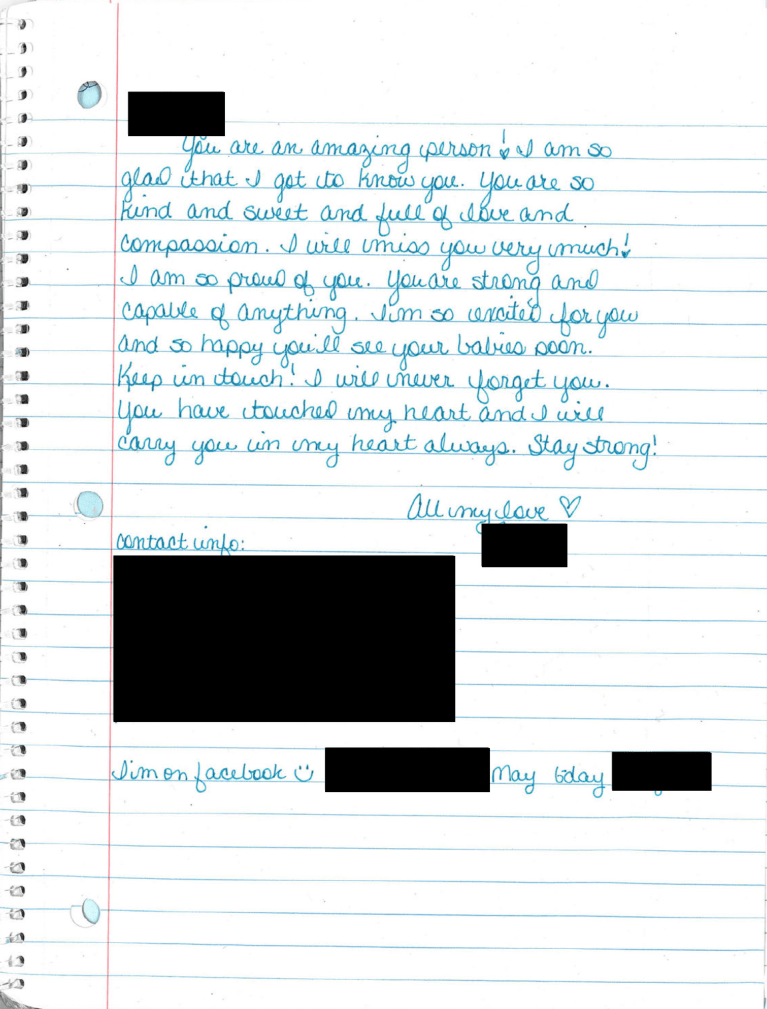 You are an amazing person! I am so
glad that I got to know you. You are so
kind and sweet and full of love and
compassion. I will miss you very much!
I am so proud of you. You are strong and
capable of anything. I'm so excited for you
and so happy you'll see your babies soon.
Keep in touch! I will never forget you.
You have touched my heart and I will
carry you in my heart always. Stay strong!
All my love ♡
contact info:
I'm on facebook ☺ May 6day